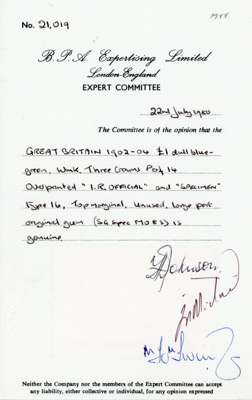 No. 21,019
B. P. A. Expertising Limited
London-England
EXPERT COMMITTEE
22nd July 1980
The Committee is of the opinion that the
GREAT BRITAIN 1902-04 £1 dull blue-
green, Wmk. Three Crowns Pof 14
Overprinted "I.R. OFFICIAL" and "SPECIMEN"
Type 16, Top marginal, unused, large part
original gum (SG Spec MO85) is
genuine.
Neither the Company nor the members of the Expert Committee can accept
any liability, either collective or individual, for any opinion expressed